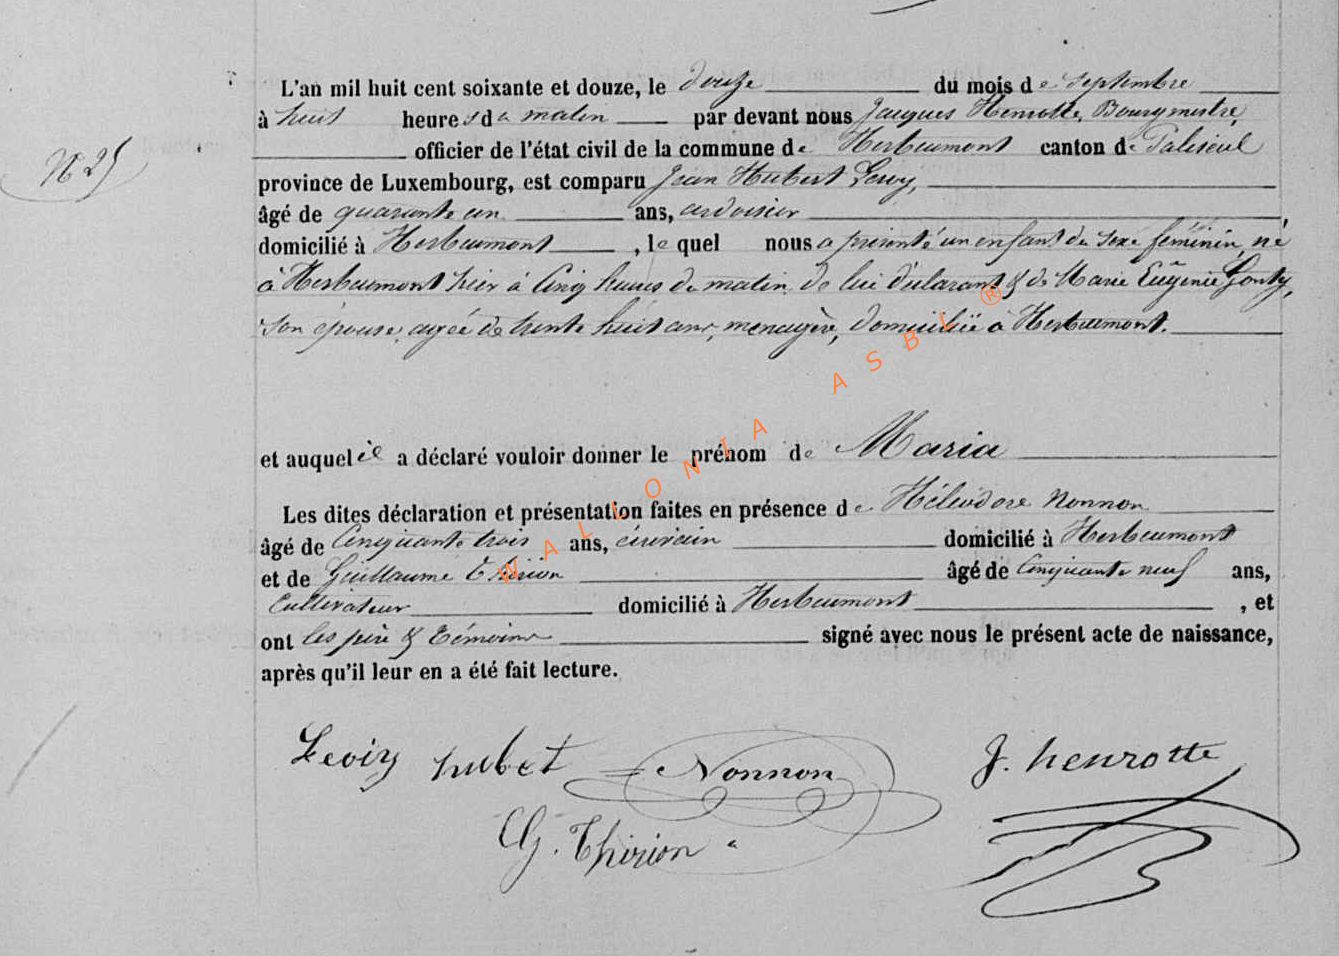 L'an mil huit cent soixante et douze, le douze du mois de septembre
à huit heures du matin par devant nous Jacques Henrotte, Bourgmestre,
officier de l'état civil de la commune de Herbeumont canton de Paliseul
N° 25
province de Luxembourg, est comparu Jean Hubert Leroy,
âgé de quarante un ans, ardoisier
domicilié à Herbeumont, lequel nous a présenté un enfant du sexe féminin, né
à Herbeumont hier à Cinq heures du matin de lui déclarant & de Marie Eugénie
son épouse, agée de trente huit ans, menagère, domiciliée à Herbeumont.
et auquel il a déclaré vouloir donner le prénom de Maria
Les dites déclaration et présentation faites en présence de Héliodore Nonnon
âgé de Cinquante trois ans, domicilié à Herbeumont
et de Guillaume Thirion âgé de Cinquante neuf ans,
Cultivateur domicilié à Herbeumont, et
ont les père & témoins signé avec nous le présent acte de naissance,
après qu'il leur en a été fait lecture.
hubet Nonnon J. henrotte
G. Thirion
WALLONIA ASBL ®